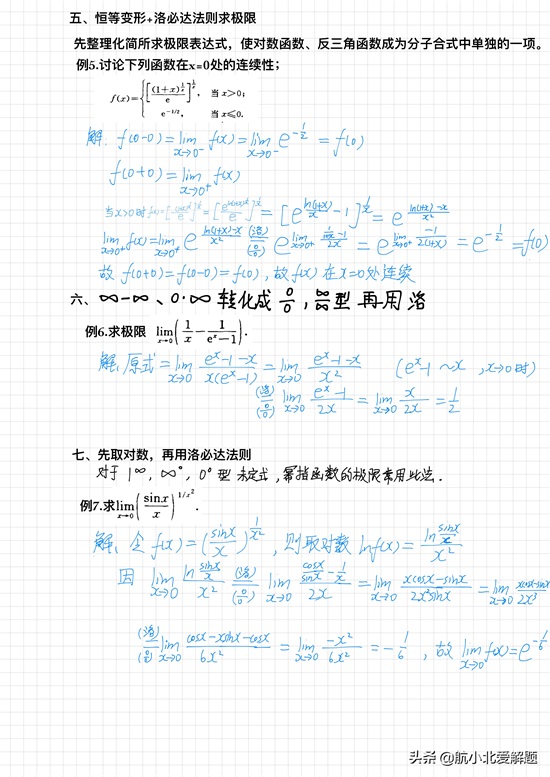 五、恒等变形+洛必达法则求极限
先整理化简所求极限表达式，使对数函数、反三角函数成为分子合式中单独的一项。
例5.讨论下列函数在x=0处的连续性；
f(x)={[(1+x)^{1/x}/e]^{1/x}, 当 x>0;
e^{-1/2}, 当 x≤0.
解. f(0-0)=lim_{x→0⁻} f(x)=lim_{x→0⁻} e^{-1/2}=f(0)
f(0+0)=lim_{x→0⁺} f(x)
当x>0时 f(x)=[(1+x)^{1/x}/e]^{1/x}=[e^{ln(1+x)/x}/e]^{1/x}=[e^{ln(1+x)/x -1}]^{1/x}=e^{(ln(1+x)-x)/x²}
lim_{x→0⁺} f(x)=lim_{x→0⁺} e^{(ln(1+x)-x)/x²} (洛)(0/0) e^{lim_{x→0⁺} (1/(1+x)-1)/2x}=e^{lim_{x→0⁺} -1/2(1+x)}=e^{-1/2}=f(0)
故 f(0+0)=f(0-0)=f(0), 故 f(x) 在 x=0 处连续
六、∞-∞、0·∞ 转化成 0/0, ∞/∞型 再用洛
例6.求极限 lim_{x→0}(1/x - 1/(eˣ-1)).
解.原式=lim_{x→0} (eˣ-1-x)/(x(eˣ-1))=lim_{x→0} (eˣ-1-x)/x² (eˣ-1~x ,x→0时)
(洛)(0/0) lim_{x→0} (eˣ-1)/2x=lim_{x→0} x/2x=1/2
七、先取对数，再用洛必达法则
对于 1^∞, ∞⁰, 0⁰ 型 未定式,幂指函数的极限常用此法.
例7.求lim_{x→0}(sin x/x)^{1/x²}.
解、令 f(x)=(sinx/x)^{1/x²}, 则取对数 lnf(x)=ln(sinx/x)/x²
因 lim_{x→0} ln(sinx/x)/x² (洛)(0/0) lim_{x→0} (cosx/sinx - 1/x)/2x=lim_{x→0} (xcosx-sinx)/2x²sinx=lim_{x→0} (xcosx-sinx)/2x³
(洛)(0/0) lim_{x→0} (cosx-xsinx-cosx)/6x²=lim_{x→0} -x²/6x²=-1/6, 故 lim_{x→0} f(x)=e^{-1/6}
头条 @航小北爱解题